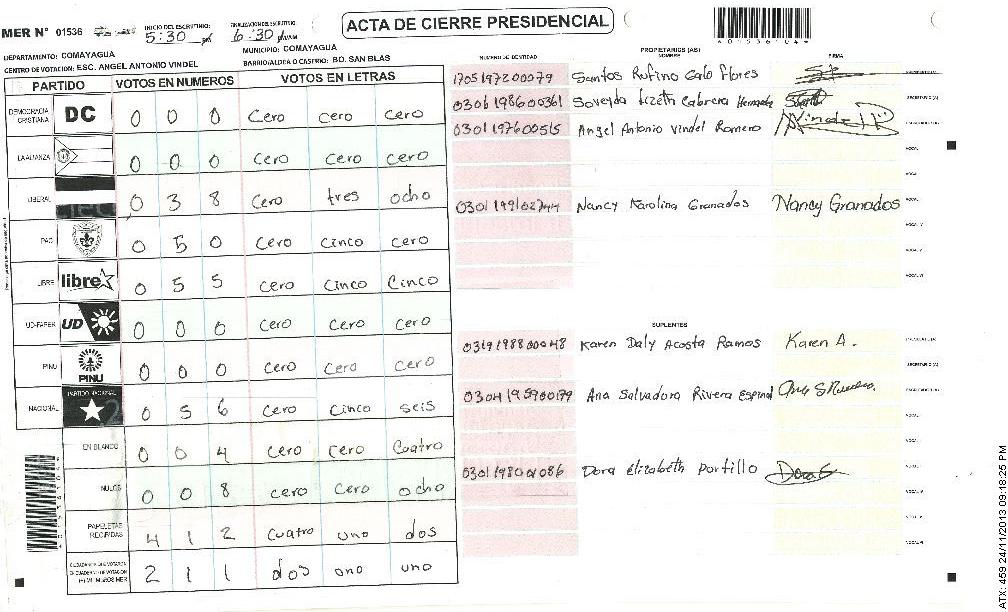 ACTA DE CIERRE PRESIDENCIAL
MER N° 01536
INICIO DEL ESCRUTINIO: 5:30 pm
FINALIZACION DEL ESCRUTINIO: 6:30 p/m
DEPARTAMENTO: COMAYAGUA
MUNICIPIO: COMAYAGUA
CENTRO DE VOTACION: ESC. ANGEL ANTONIO VINDEL
BARRIO/ALDEA O CASERIO: BO. SAN BLAS
PARTIDO VOTOS EN NUMEROS VOTOS EN LETRAS
DEMOCRACIA CRISTIANA DC 0 0 0 Cero Cero Cero
LA ALIANZA 0 0 0 Cero Cero Cero
LIBERAL 0 3 8 Cero tres ocho
PAC 0 5 0 Cero Cinco Cero
LIBRE libre 0 5 5 Cero Cinco Cinco
UD-FAPER UD 0 0 0 Cero Cero Cero
PINU PINU 0 0 0 Cero Cero Cero
NACIONAL PARTIDO NACIONAL 0 5 6 Cero Cinco seis
EN BLANCO 0 0 4 Cero Cero Cuatro
NULOS 0 0 8 Cero Cero ocho
PAPELETAS RECIBIDAS 4 1 2 Cuatro uno dos
2 1 1 dos uno uno
PROPIETARIOS (AS)
NUMERO DE IDENTIDAD NOMBRE FIRMA
1705197200079 Santos Rufino Galo Flores
0306198600361 Soveyda Lizeth Cabrera
0301197600515 Angel Antonio Vindel Romero
0301199102744 Nancy Karolina Granados Nancy Granados
SUPLENTES
0319198800048 Karen Daly Acosta Ramos Karen A.
0304195900179 Ana Salvadora Rivera Espinal
Dora Elizabeth Portillo
ATX: 459 24/11/2013 09:18:25 PM